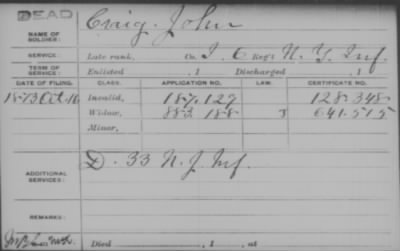 DEAD
Craig, John
NAME OF SOLDIER:
SERVICE: Late rank, Co. I, 6 Reg't N. Y. Inf.
TERM OF SERVICE: Enlisted , 1 Discharged , 1
DATE OF FILING. CLASS. APPLICATION NO. LAW. CERTIFICATE NO.
1873 Oct. 16 Invalid, 187.127 128.348
Widow, 883.188 641.515
Minor,
D. 33 N. J. Inf.
ADDITIONAL SERVICES:
REMARKS:
Died , 1 , at